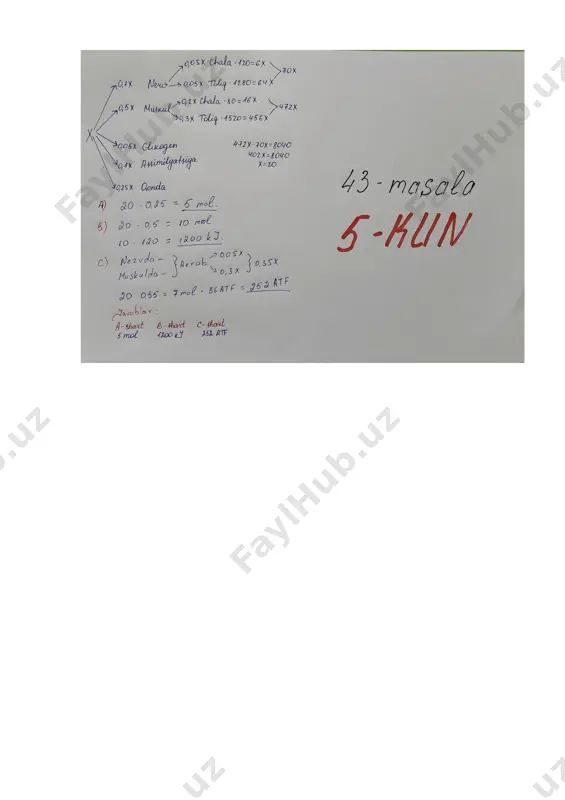 0,05X Chala · 120 = 6X
0,1X Nerv 70X
0,05X To'liq · 1280 = 64X
0,5X Muskul 0,2X Chala · 80 = 16X
472X
0,3X To'liq · 1520 = 456X
X
0,05X Glikogen 472X - 70X = 8040
0,1X Assimilyatsiya 402X = 8040
X = 20
0,25X Qonda
A) 20 · 0,25 = 5 mol.
B) 20 · 0,5 = 10 mol
10 · 120 = 1200 kJ.
C) Nervda - 0,05X
Aerob 0,35X
Muskulda - 0,3X
20 · 0,35 = 7 mol · 36 ATF = 252 ATF
Javoblar:
A-shart B-shart C-shart
5 mol 1200 kJ 252 ATF
43-masala
5-KUN
FaylHub.uz
FaylHub.uz
FaylHub.uz